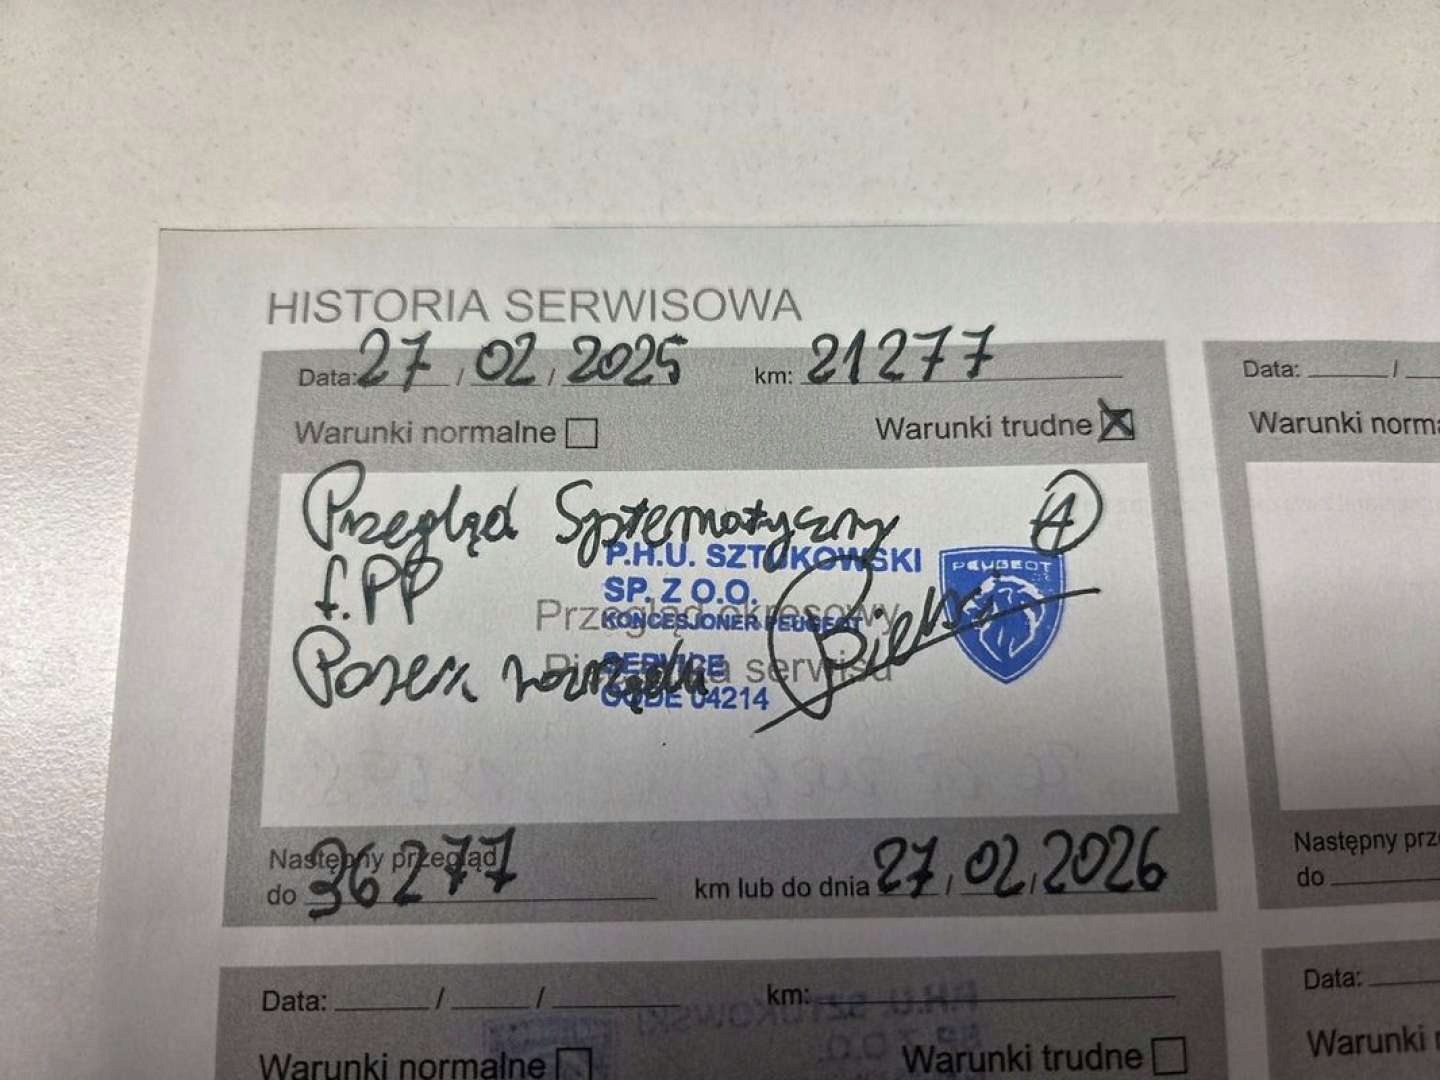 HISTORIA SERWISOWA
Data: 27 / 02 / 2025 km: 21277
Warunki normalne Warunki trudne
Przegląd Systematyczny A
f.PP
Pasek rozrządu
P.H.U. SZTUKOWSKI
SP. Z O.O.
KONCESJONER PEUGEOT
SERVICE
CODE 04214
PEUGEOT
Przegląd okresowy
Pieczątka serwisu
Następny przegląd
do 36277 km lub do dnia 27 / 02 / 2026
Data: / / km:
Warunki normalne Warunki trudne
Data: /
Warunki norma
Następny prze
do
Data:
Warunki